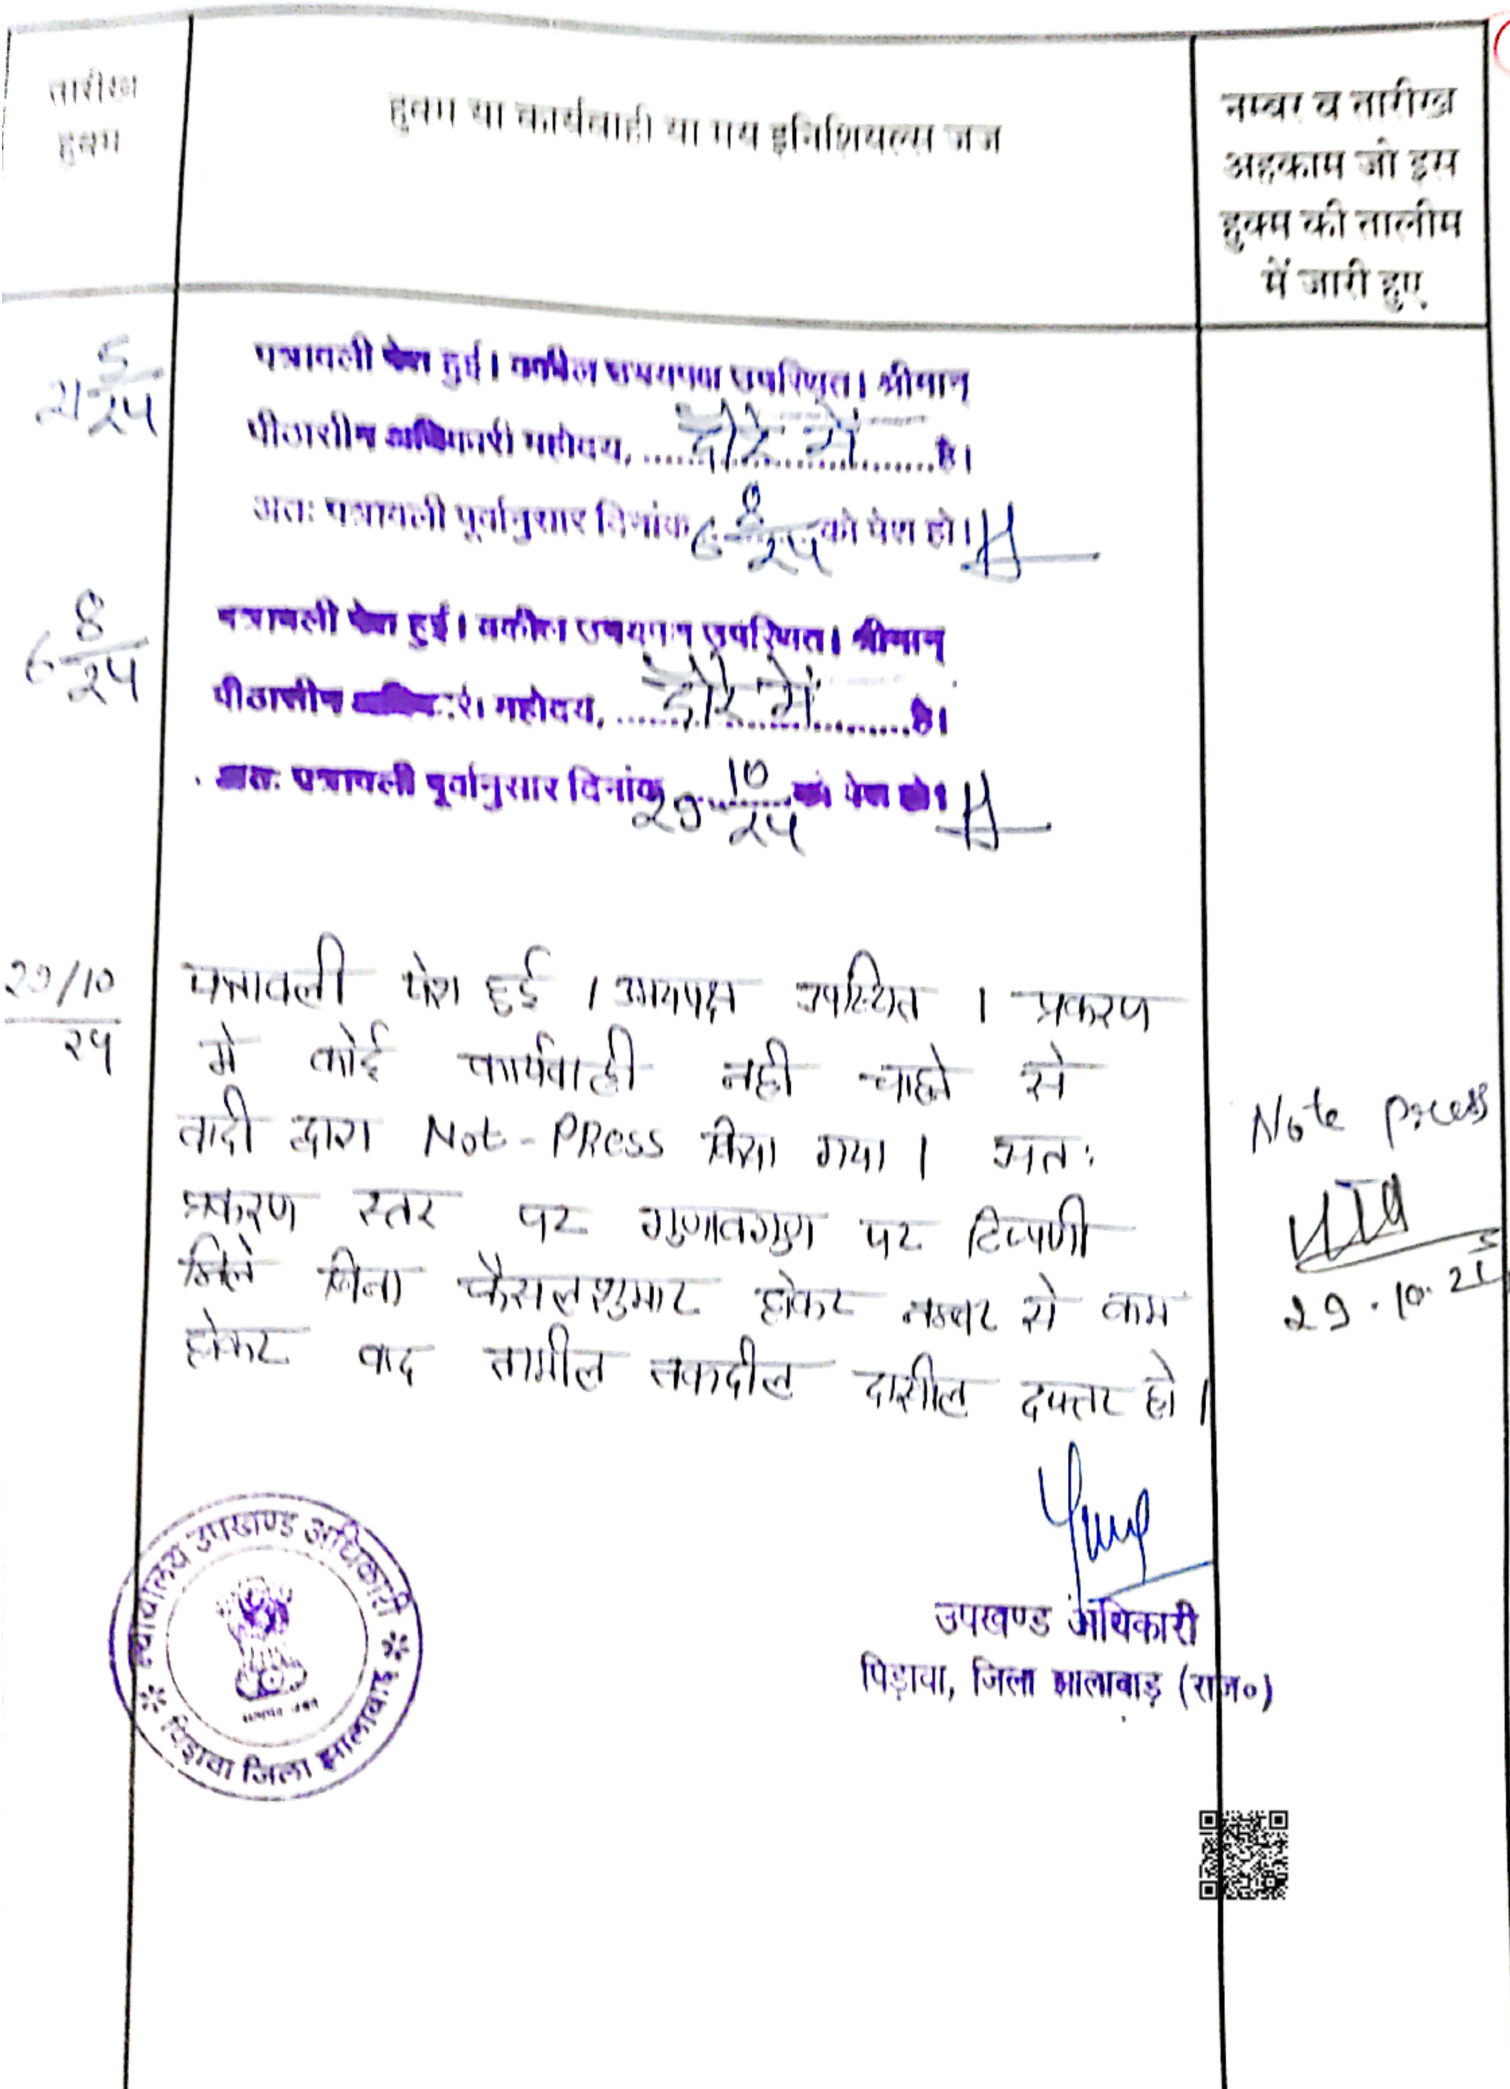 तारीख
हुक्म
हुक्म या कार्यवाही या मय इनिशियल्स जज
नम्बर व तारीख
अहकाम जो इस
हुक्म की तालीम
में जारी हुए
5
२५
पत्रावली पेश हुई। वकील उभयपक्ष उपस्थित। श्रीमान्
पीठासीन अधिकारी महोदय, दौरे में है।
अतः पत्रावली पूर्वानुसार दिनांक 6 8/२५ को पेश हो।
6 8
२५
पत्रावली पेश हुई। वकील उभयपक्ष उपस्थित। श्रीमान्
पीठासीन महोदय, दौरे में है।
अतः पत्रावली पूर्वानुसार दिनांक २9 10/२५ को पेश हो।
२9/10
२५
पत्रावली पेश हुई । उभयपक्ष उपस्थित । प्रकरण
मे कोई कार्यवाही नही चाहने से
वादी द्वारा Not-PRess किया गया । अतः
प्रकरण स्तर पर गुणावगुण पर टिप्पणी
किये बिना फैसलशुमार होकर नम्बर से कम
होकर बाद तामील तकमील दाखील दफ्तर हो ।
Note press
29.10.25
उपखण्ड अधिकारी
पिड़ावा, जिला झालावाड़ (राज०)
न्यायालय उपखण्ड अधिकारी
पिड़ावा जिला झालावाड़